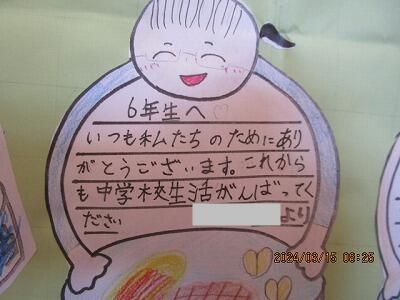 6年生へ♡
いつも私たちのためにあり
がとうございます。これから
も中学校生活がんばってく
ださい
より
2024/03/15 08:25